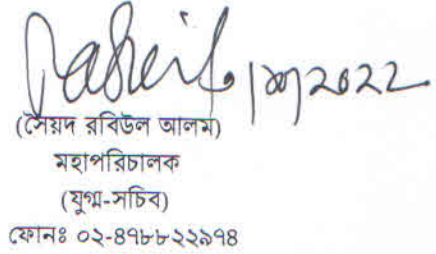 (সৈয়দ রবিউল আলম)
মহাপরিচালক
(যুগ্ম-সচিব)
ফোনঃ ০২-৪৭৮৮২২৯৭৪